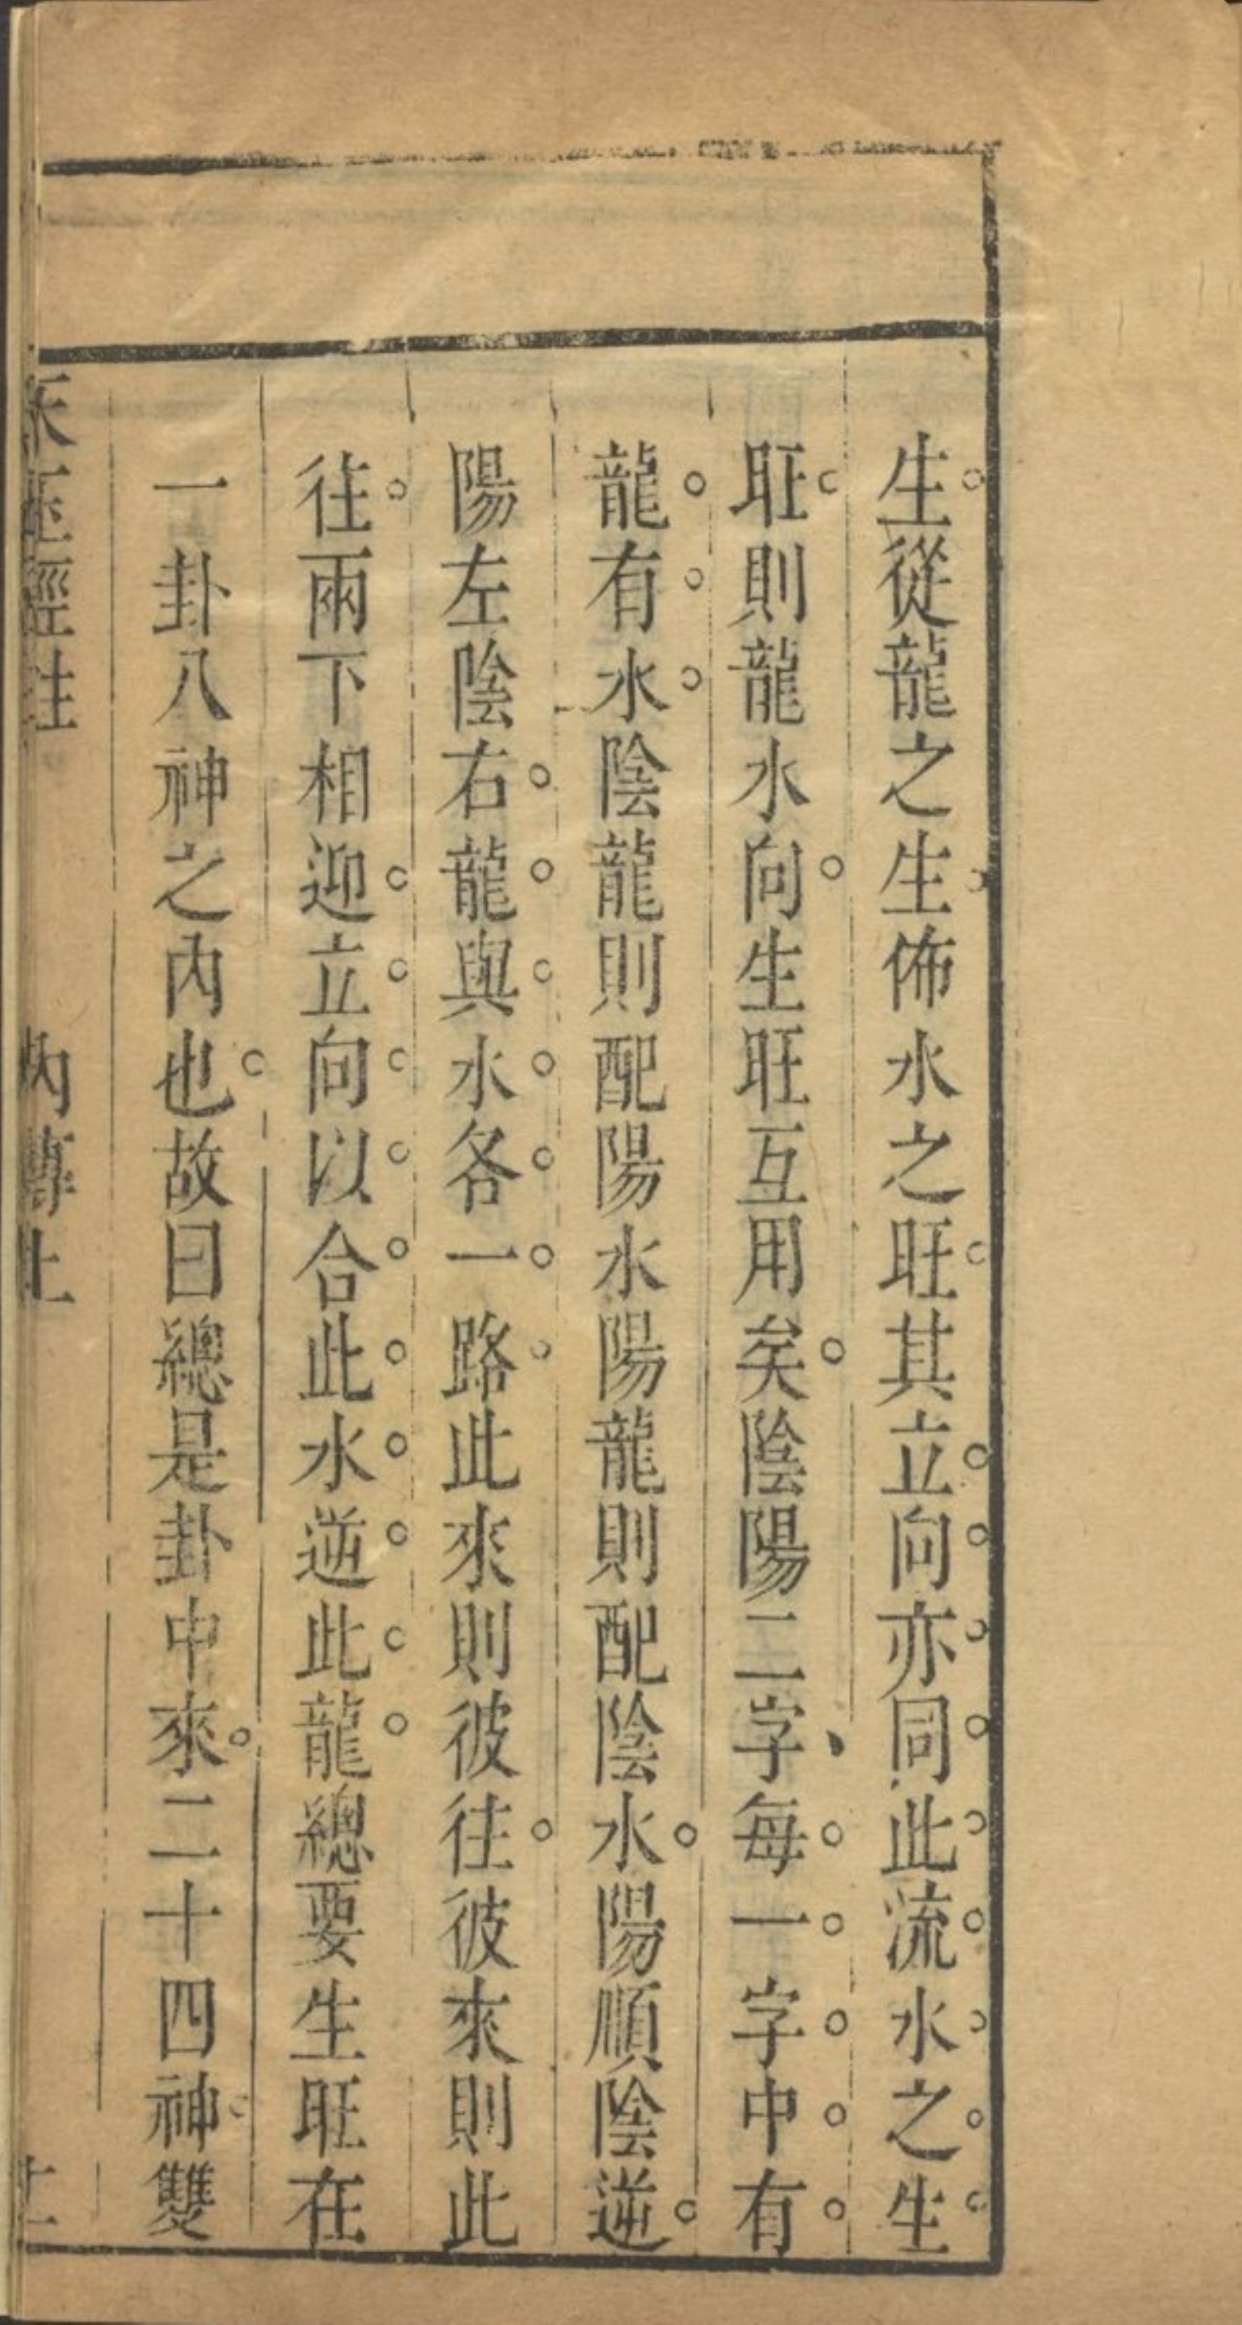 生從龍之生佈水之旺其立向亦同此流水之生
旺則龍水向生旺互用矣陰陽二字每一字中有
龍有水陰龍則配陽水陽龍則配陰水陽順陰逆
陽左陰右龍與水各一路此來則彼往彼來則此
往兩下相迎立向以合此水逆此龍總要生旺在
一卦八神之內也故曰總是卦中來二十四神雙
經註
內傳上